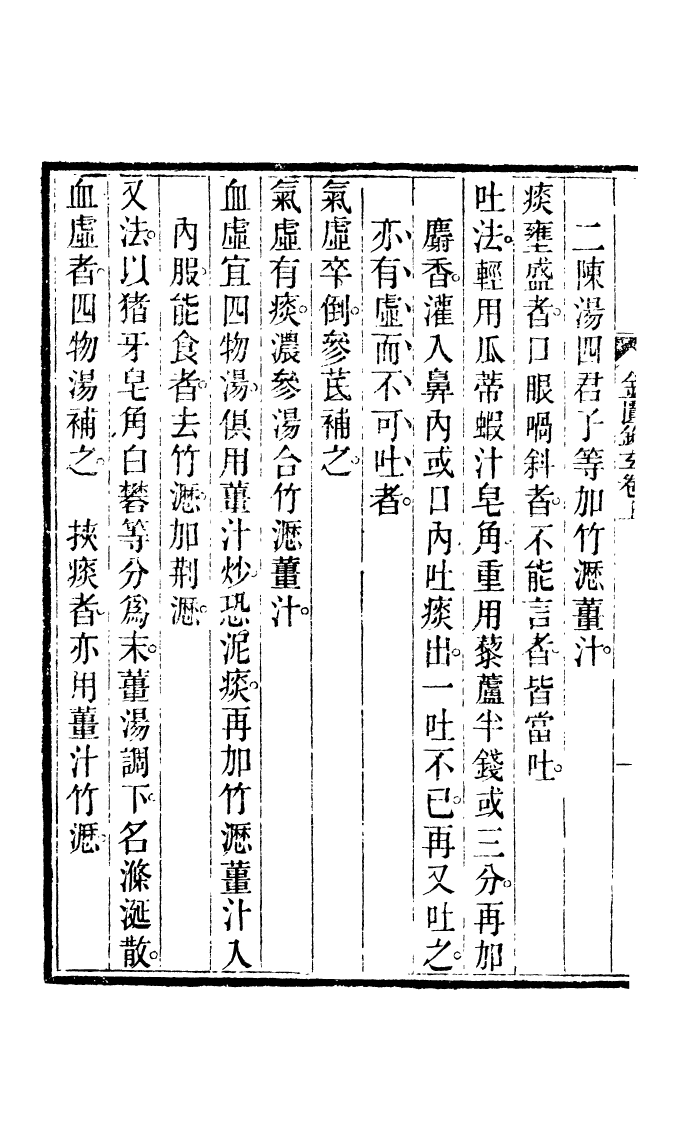 二陳湯四君子等加竹瀝薑汁。
痰壅盛者。口眼喎斜者。不能言者皆當吐。
吐法。輕用瓜蒂蝦汁皂角重用藜蘆半錢或三分。再加
麝香。灌入鼻內或口內吐痰出。一吐不已。再又吐之。
亦有虛而不可吐者。
氣虛卒倒。參芪補之。
氣虛有痰。濃參湯合竹瀝薑汁。
血虛宜四物湯。俱用薑汁炒恐泥痰。再加竹瀝薑汁入
內服能食者。去竹瀝加荆瀝。
又法。以猪牙皂角白礬等分爲末。薑湯調下。名滌涎散。
血虛者。四物湯補之。 挾痰者。亦用薑汁竹瀝。